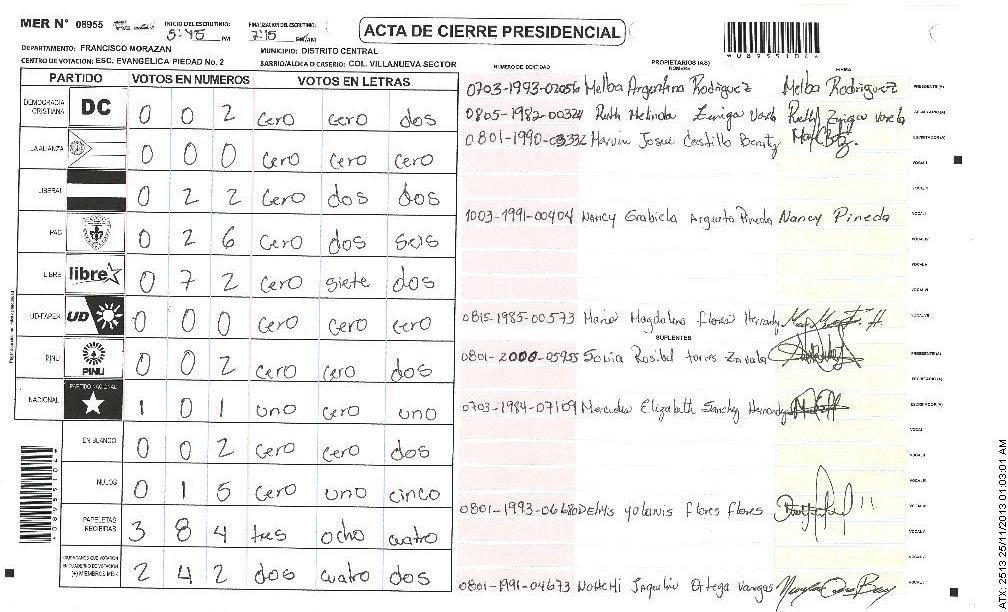 MER N° 08955 INICIO DEL ESCRUTINIO: 5:45 PM FINALIZACION DEL ESCRUTINIO: 7:15 PM/AM
ACTA DE CIERRE PRESIDENCIAL
DEPARTAMENTO: FRANCISCO MORAZAN MUNICIPIO: DISTRITO CENTRAL
CENTRO DE VOTACION: ESC. EVANGELICA PIEDAD No. 2 BARRIO/ALDEA O CASERIO: COL. VILLANUEVA SECTOR
PARTIDO VOTOS EN NUMEROS VOTOS EN LETRAS
DEMOCRACIA CRISTIANA DC 0 0 2 cero cero dos
LA ALIANZA 0 0 0 cero cero cero
LIBERAL 0 2 2 cero dos dos
PAC 0 2 6 cero dos seis
LIBRE libre 0 7 2 cero siete dos
UD-FAPER UD 0 0 0 cero cero cero
PINU PINU 0 0 2 cero cero dos
NACIONAL PARTIDO NACIONAL 1 0 1 uno cero uno
EN BLANCO 0 0 2 cero cero dos
NULOS 0 1 5 cero uno cinco
PAPELETAS RECIBIDAS 3 8 4 tres ocho cuatro
CIUDADANOS QUE VOTARON EN CUADERNO DE VOTACION (+) MIEMBROS MER 2 4 2 dos cuatro dos
NUMERO DE IDENTIDAD PROPIETARIOS (AS) NOMBRE FIRMA
0703-1993-02056 Melba Argentina Rodriguez Melba Rodriguez PRESIDENTE (A)
0805-1982-00324 Ruth Melinda Zuniga Varela SECRETARIO (A)
0801-1990-03332 Marvin Josue Castillo Benitz ESCRUTADOR (A)
VOCAL I
VOCAL II
1003-1991-00404 Nancy Grabiela Argueta Pineda Nancy Pineda
VOCAL IV
VOCAL V
VOCAL VI
0815-1985-00573 Maria Magdalena Flores Hernandy VOCAL VII
SUPLENTES
0801-2000-05955 Sonia Rosibel torres Zavala PRESIDENTE (A)
SECRETARIO (A)
0703-1984-07109 Mercedes Elizabeth Sanchy Hernandy ESCRUTADOR (A)
VOCAL I
VOCAL II
VOCAL III
0801-1993-06680 Delhis yolanis flores flores VOCAL IV
VOCAL V
VOCAL VI
0801-1991-04673 Nohemi Jaquelin Ortega Vargas
08955104
ATX-2513 25/11/2013 01:03:01 AM